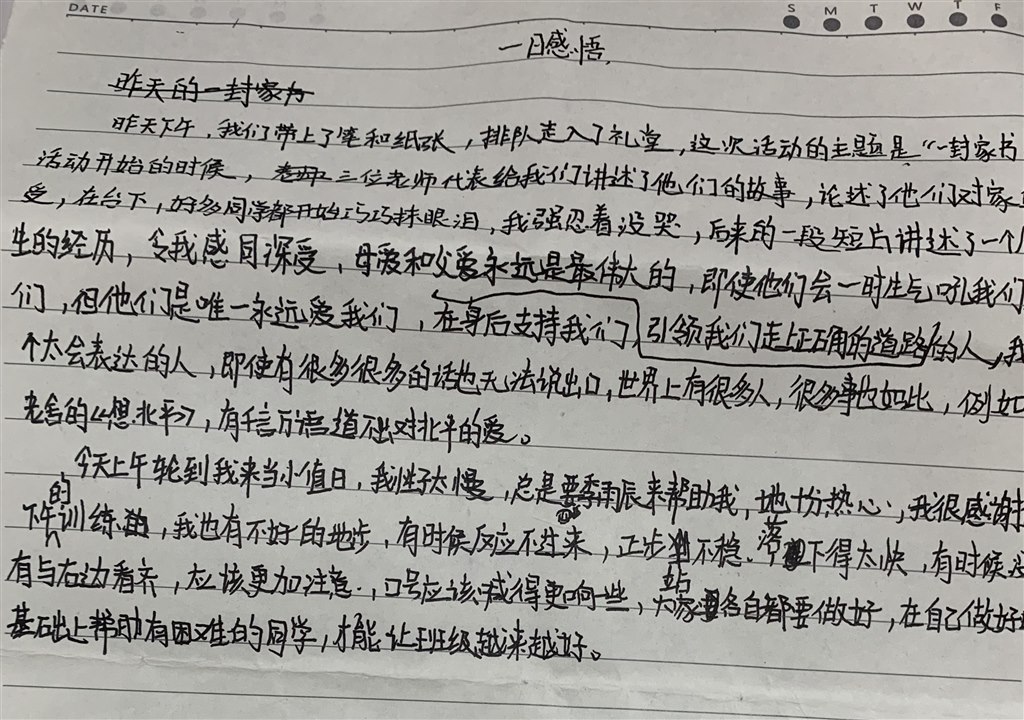 DATE
S M T W T F
一日感悟.
昨天的一封家为
昨天下午，我们带上了笔和纸张，排队走入了礼堂，这次活动的主题是“一封家书
活动开始的时候，三位老师代表给我们讲述了他们的故事，论述了他们对家
受，在台下，好多同学都开始巧巧抹眼泪，我强忍着没哭，后来的一段短片讲述了一个
生的经历，令我感同深受，母爱和父爱永远是最伟大的，即使他们会一时生气吼我们
们，但他们是唯一永远爱我们，在身后支持我们，引领我们走上正确的道路的人，我
个太会表达的人，即使有很多很多的话也无法说出口，世界上有很多人，很多事也如此，例如
老舍的《想北平》，有千言万语道不出对北平的爱。
今天上午轮到我来当小值日，我性子太慢，总是要季雨辰来帮助我，她十分热心，我很感谢
下午的训练，我也有不好的地步，有时候反应不过来，正步不稳，落下得太快，有时候没
有与右边看齐，应该更加注意，口号应该喊得更响一些，大家站各自都要做好，在自己做好
基础上帮助有困难的同学，才能让班级越来越好。